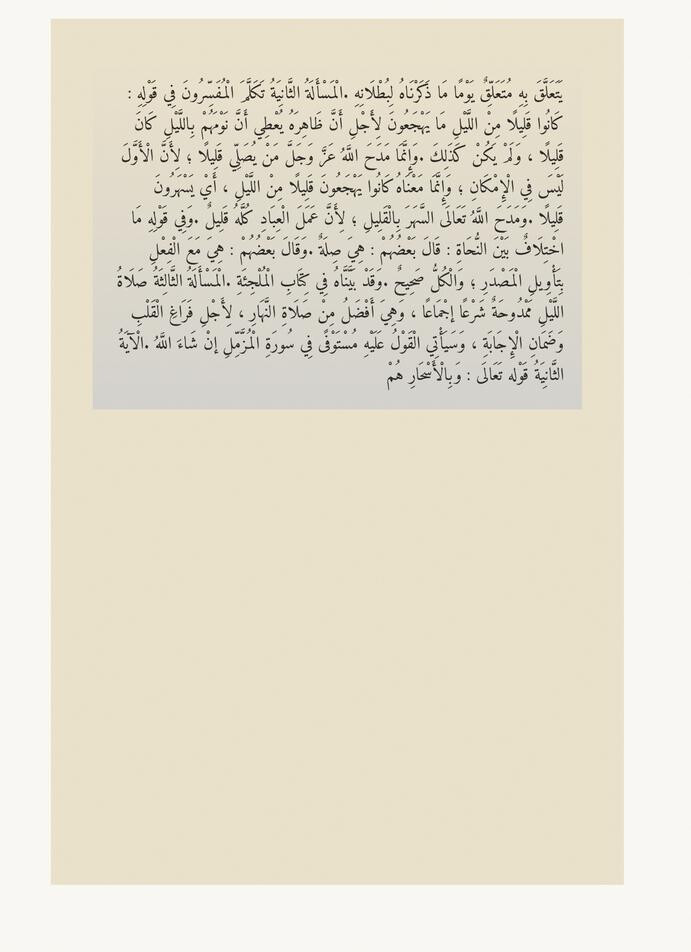 يَتَعَلَّقَ بِهِ مُتَعَلِّقٌ يَوْمًا مَا ذَكَرْنَاهُ لِبُطْلَانِهِ .الْمَسْأَلَةُ الثَّانِيَةُ تَكَلَّمَ الْمُفَسِّرُونَ فِي قَوْلِهِ :
كَانُوا قَلِيلًا مِنْ اللَّيْلِ مَا يَهْجَعُونَ لِأَجْلِ أَنَّ ظَاهِرَهُ يُعْطِي أَنَّ نَوْمَهُمْ بِاللَّيْلِ كَانَ
قَلِيلًا ، وَلَمْ يَكُنْ كَذَلِكَ .وَإِنَّمَا مَدَحَ اللَّهُ عَزَّ وَجَلَّ مَنْ يُصَلِّي قَلِيلًا ؛ لِأَنَّ الْأَوَّلَ
لَيْسَ فِي الْإِمْكَانِ ؛ وَإِنَّمَا مَعْنَاهُ كَانُوا يَهْجَعُونَ قَلِيلًا مِنْ اللَّيْلِ ، أَيْ يَسْهَرُونَ
قَلِيلًا .وَمَدَحَ اللَّهُ تَعَالَى السَّهَرَ بِالْقَلِيلِ ؛ لِأَنَّ عَمَلَ الْعِبَادِ كُلَّهُ قَلِيلٌ .وَفِي قَوْلِهِ مَا
اخْتِلَافٌ بَيْنَ النُّحَاةِ : قَالَ بَعْضُهُمْ : هِيَ صِلَةٌ .وَقَالَ بَعْضُهُمْ : هِيَ مَعَ الْفِعْلِ
بِتَأْوِيلِ الْمَصْدَرِ ؛ وَالْكُلُّ صَحِيحٌ .وَقَدْ بَيَّنَّاهُ فِي كِتَابِ الْمُلْجِئَةِ .الْمَسْأَلَةُ الثَّالِثَةُ صَلَاةُ
اللَّيْلِ مَمْدُوحَةٌ شَرْعًا إجْمَاعًا ، وَهِيَ أَفْضَلُ مِنْ صَلَاةِ النَّهَارِ ، لِأَجْلِ فَرَاغِ الْقَلْبِ
وَضَمَانِ الْإِجَابَةِ ، وَسَيَأْتِي الْقَوْلُ عَلَيْهِ مُسْتَوْفًى فِي سُورَةِ الْمُزَّمِّلِ إنْ شَاءَ اللَّهُ .الْآيَةُ
الثَّانِيَةُ قَوْله تَعَالَى : وَبِالْأَسْحَارِ هُمْ